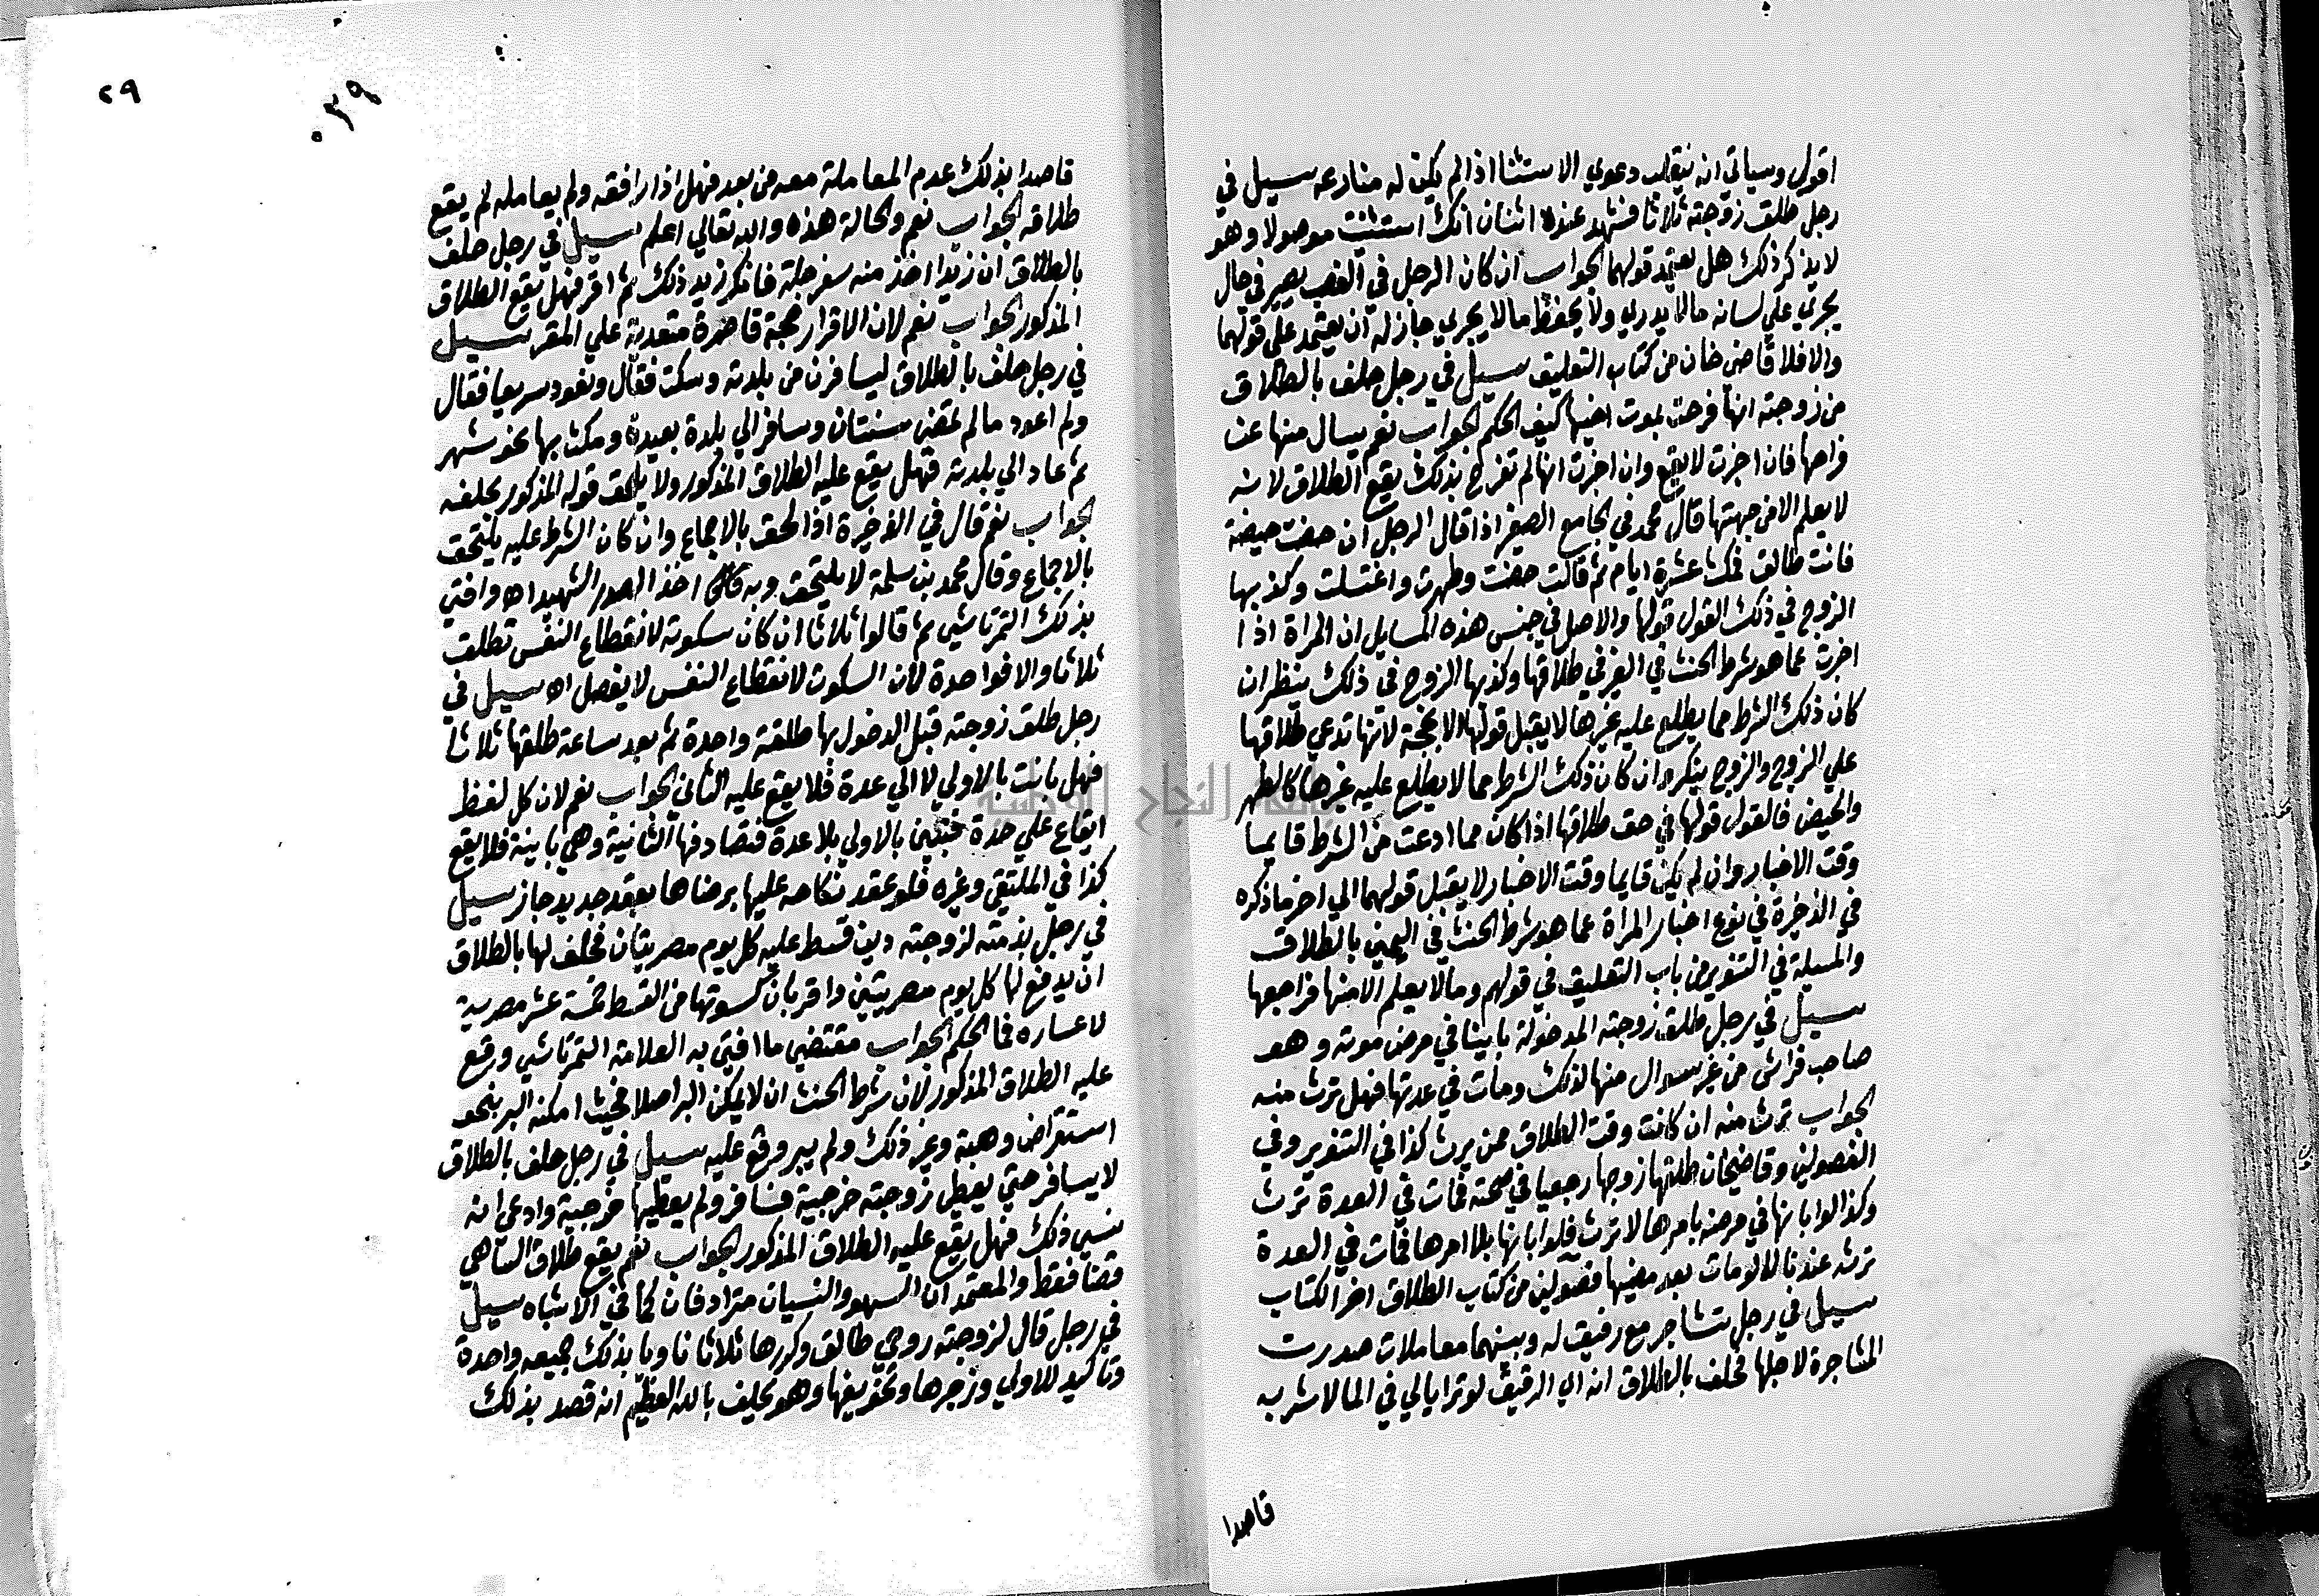 اقول وسياتي انه يقلب دعوي الاستثنا اذا لم يكن له منازعه سيل في
رجل طلق زوجته ثلاثا فشهد عنده اثنان انك استثنيت موصولا وهو
لا يذكر ذلك هل يعتمد قولهما الجواب ان كان الرجل في الغضب يصير في حال
يجري علي لسانه ما لا يدري ولا يحفظ ما لا يجري جاز له ان يعتمد علي قولهما
والا فلا قاضي خان من كتاب التعليق سيل في رجل حلف بالطلاق
من زوجته انها فرحت بموت اخيها كيف الحكم الجواب نعم يسال منها عن
فراحها فان اخبرت لا يقع وان اخبرت انها لم تفرح بذلك يقع الطلاق لانه
لا يعلم الا من جهتها قال محمد في الجامع الصغير اذا قال الرجل ان حضت حيضة
فانت طالق فمكث عشرة ايام ثم قالت حضت وطهرت واغتسلت وكذبها
الزوج في ذلك القول قولها والاصل في جنس هذه المسايل ان المراة اذا
اخبرت عما هو شرط الحنث في اليمين في طلاقها وكذبها الزوج في ذلك ينظر ان
كان ذلك الشرط مما يطلع عليه غيرها لا يقبل قولها الا بحجة لانها تدعي طلاقها
علي الزوج والزوج ينكر وان كان ذلك الشرط مما لا يطلع عليه غيرها كالطهر
والحيض فالقول قولها في حق طلاقها اذا كان مما ادعت من الشرط قايما
وقت الاخبار وان لم يكن قايما وقت الاخبار لا يقبل قولهما الي اخر ما ذكره
في الذخيرة في نوع اخبار المراة عما هو شرط الحنث في اليمين بالطلاق
والمسيلة في التنوير من باب التعليق في قولهم وما لا يعلم الا منها فراجعها
سيل في رجل طلق زوجته المدخولة باينا في مرض موته وهو
صاحب فراش من غير سوال منها لذلك ومات في عدتها فهل ترث منه
الجواب ترث منه ان كانت وقت الطلاق ممن يرث كذا في التنوير وفي
الفصولين وقاضيخان طلقها زوجها رجعيا في صحته فمات في العدة ترث
وكذا لو ابانها في مرضه بامرها لا ترث فلو ابانها بلا امرها فمات في العدة
ترثه عندنا لا لو مات بعد مضيها فصولين من كتاب الطلاق اخر الكتاب
سيل في رجل تشاجر مع رفيق له وبينهما معاملات صدرت
المشاجرة لاجلها فحلف بالطلاق انه اي الرفيق لو ترايا لي في الما لا شربه
قاصدا
٢٩
٠٣٩
قاصدا بذلك عدم المعاملة معه من بعد فهل اذا رافقه ولم يعامله لم يقع
طلاقه الجواب نعم والحالة هذه والله تعالي اعلم سيل في رجل حلف
بالطلاق ان زيدا اخذ منه سفرجلة فانكر زيد ذلك ثم اقر فهل يقع الطلاق
المذكور الجواب نعم لان الاقرار حجة قاصرة متعدية علي المقر سيل
في رجل حلف بالطلاق ليسافرن من بلدته وسكت فقال ونعود سريعا فقال
ولم اعود ما لم تمضي سنتان وسافر الي بلدة بعيدة ومكث بها نحو شهر
ثم عاد الي بلدته فهل يقع عليه الطلاق المذكور ولا يلحق قوله المذكور بحلفه
الجواب نعم قال في الذخيرة اذا لحق بالاجماع وان كان الشرط عليه يلتحق
بالاجماع وقال محمد بن سلمة لا يلتحق وبه اخذ الصدر الشهيد اه وافتي
بذلك التمرتاشي ثم قالوا ثلاثا ان كان سكوته لانقطاع النفس تطلق
ثلاثا والا فواحدة لان السكوت لانقطاع النفس لا يفصل اه سيل في
رجل طلق زوجته قبل الدخول بها طلقة واحدة ثم بعد ساعة طلقها ثلاثا
فهل بانت بالاولي لا الي عدة فلا يقع عليه الثاني الجواب نعم لان كل لفظ
ايقاع علي حدة فتبين بالاولي بلا عدة فتصادفها الثانية وهي باينة فلا يقع
كذا في الملتقي وغيره فلو عقد نكاحه عليها برضاها بعقد جديد جاز سيل
في رجل بذمته لزوجته دين قسط عليه كل يوم مصريتان فحلف لها بالطلاق
ان يدفع لها كل يوم مصريتين واقر بان كسوتها من القسط خمسة عشر مصرية
لاعساره فما الحكم الجواب مقتضي ما افتي به العلامة التمرتاشي وقع
عليه الطلاق المذكور لان شرط الحنث ان لا يمكن البر اصلا فحيث امكنه البر بنحو
استقراض وهبة وغير ذلك ولم يبر وقع عليه سيل في رجل حلف بالطلاق
لا يسافر حتي يعطي زوجته خرجية فسافر ولم يعطيها خرجية وادعي انه
نسي ذلك فهل يقع عليه الطلاق المذكور الجواب نعم يقع طلاق الساهي
قضا فقط والمعتمد ان السهو والنسيان مترادفان كما في الاشباه سيل
في رجل قال لزوجته روحي طالق وكررها ثلاثا ناويا بذلك جميعه واحدة
وتاكيد للاولي وزجرها وتخويفها وهو يحلف بالله العظيم انه قصد بذلك
جامعة النجاح الوطنية